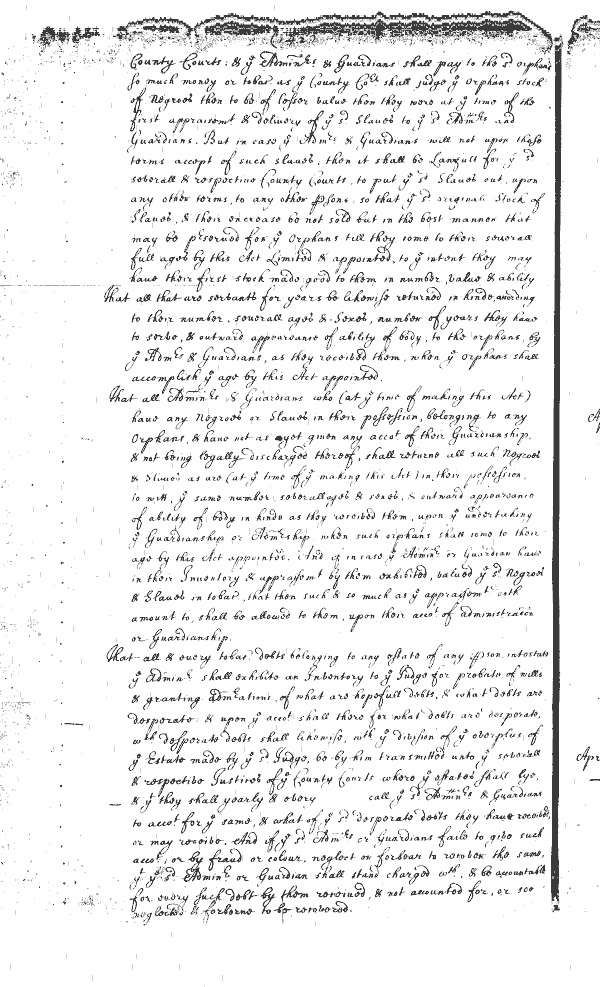 County Courts: & ye Adminrs & Guardians shall pay to the sd orphans
so much money or tobac as ye County Cort shall judge ye Orphans stock
of Negroes then to be of lesser value then they were at ye time of the
first appraismt & delivery of ye sd Slaves to ye sd Admrs and
Guardians. But in case ye Admrs & Guardians will not upon these
terms accept of such slaves; then it shall be Lawfull for ye sd
severall & respective County Courts, to put ye sd Slaves out, upon
any other terms, to any other psons, so that ye sd originall Stock of
Slaves, & their encrease be not sold but in the best manner that
may be pserved for ye Orphans till they come to their severall
full ages by this Act Limited & appointed, to ye intent they may
have their first stock made good to them in number, value & ability
That all that are servants for years be likewise returned in kinde, according
to their number, severall ages & Sexes, number of years they have
to serve, & outward appearance of ability of body, to the orphans, by
ye Admrs & Guardians, as they received them, when ye Orphans shall
accomplish ye age by this Act appointed.
That all Adminrs & Guardians who (at ye time of making this Act)
have any Negroes or Slaves in their possession, belonging to any
Orphans, & have not as yet given any accot of their Guardianship,
& not being legally discharged thereof, shall returne all such Negroes
& Slaves as are (at ye time of ye making this Act) in their possession,
to witt, ye same number severall ages & sexes, & outward appearance
of ability of body in kinde as they received them, upon ye undertaking
ye Guardianship or Admrship, when such orphans shall come to their
age by this Act appointed. And if in case ye Adminr or Guardian have
in their Inventory & appraismt by them exhibited, valued ye sd Negroes
& Slaves in tobac, that then such & so much as ye appraismt doth
amount to, shall be allowed to them, upon their accot of administration
or Guardianship.
That all & every tobac debts belonging to any estate of any pson, intestate
ye Adminr shall exhibite an Inventory to ye Judge for probate of wills
& granting Admrations, of what are hopefull debts, & what debts are
desperate: & upon ye accot shall there for what debts are desperate,
wch desperate debts shall likewise, wth ye division of ye overplus of
ye Estate made by ye sd Judge, be by him transmitted unto ye severall
& respective Justices of ye County Courts where ye estates shall lye,
& yt they shall yearly & every call ye sd Adminrs & Guardians
to accot for ye same, & what of ye sd desperate debts they have received,
or may receive. And if ye sd Admrs or Guardians faile to give such
accot, or by fraud or colour, neglect or forbear to recover the same,
yt ye sd Adminr or Guardian shall stand charged wth, & be accountable
for every such debt by them received, & not accounted for, or soe
neglected & forborne to be recovered.